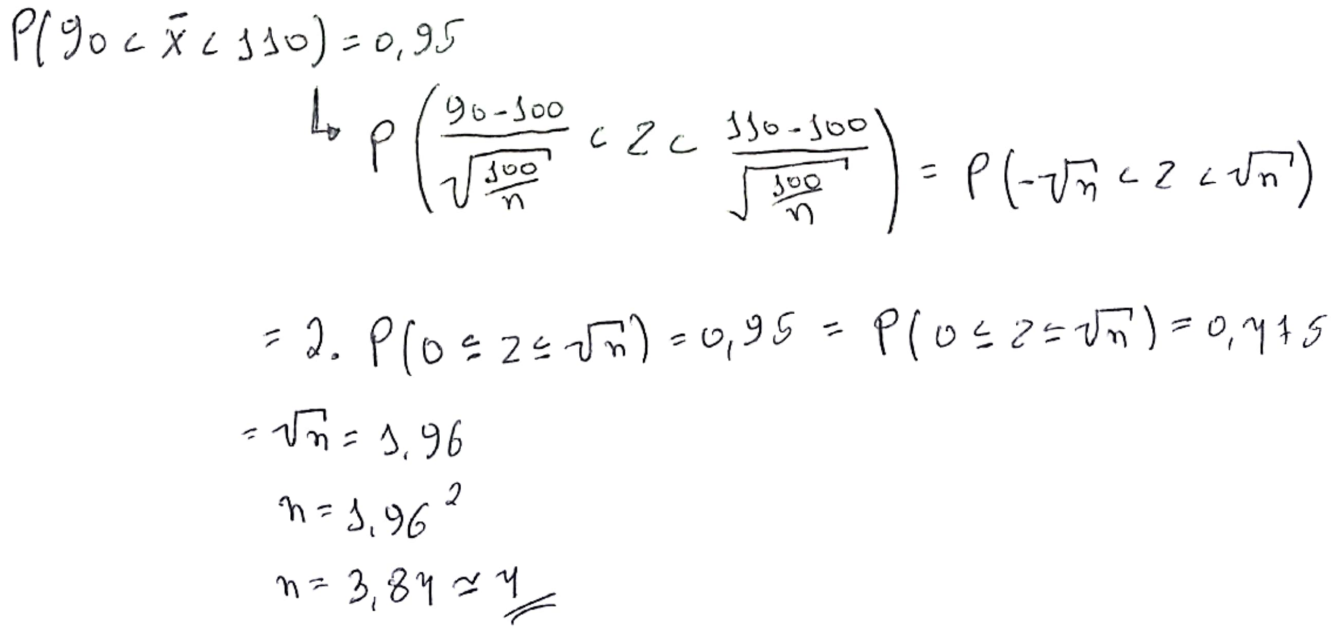 P(90 < x̄ < 110) = 0,95
↳ P( (90-100)/√(100/n) < Z < (110-100)/√(100/n) ) = P(-√n < Z < √n)
= 2. P(0 ≤ Z ≤ √n) = 0,95 = P(0 ≤ Z ≤ √n) = 0,475
= √n = 1,96
n = 1,96²
n = 3,84 ≃ 4